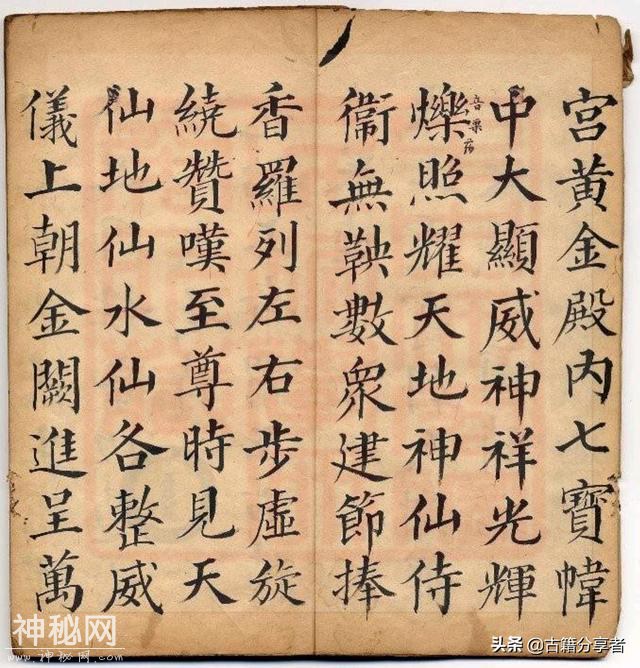 宫黄金殿内七寶幃
中大顯威神祥光輝
爍照耀天地神仙侍
衛無鞅數衆建節捧
香羅列左右步虛旋
繞贊嘆至尊時見天
仙地仙水仙各整威
儀上朝金闕進呈萬
神秘网
www.神秘网.com
头条 @古籍分享者